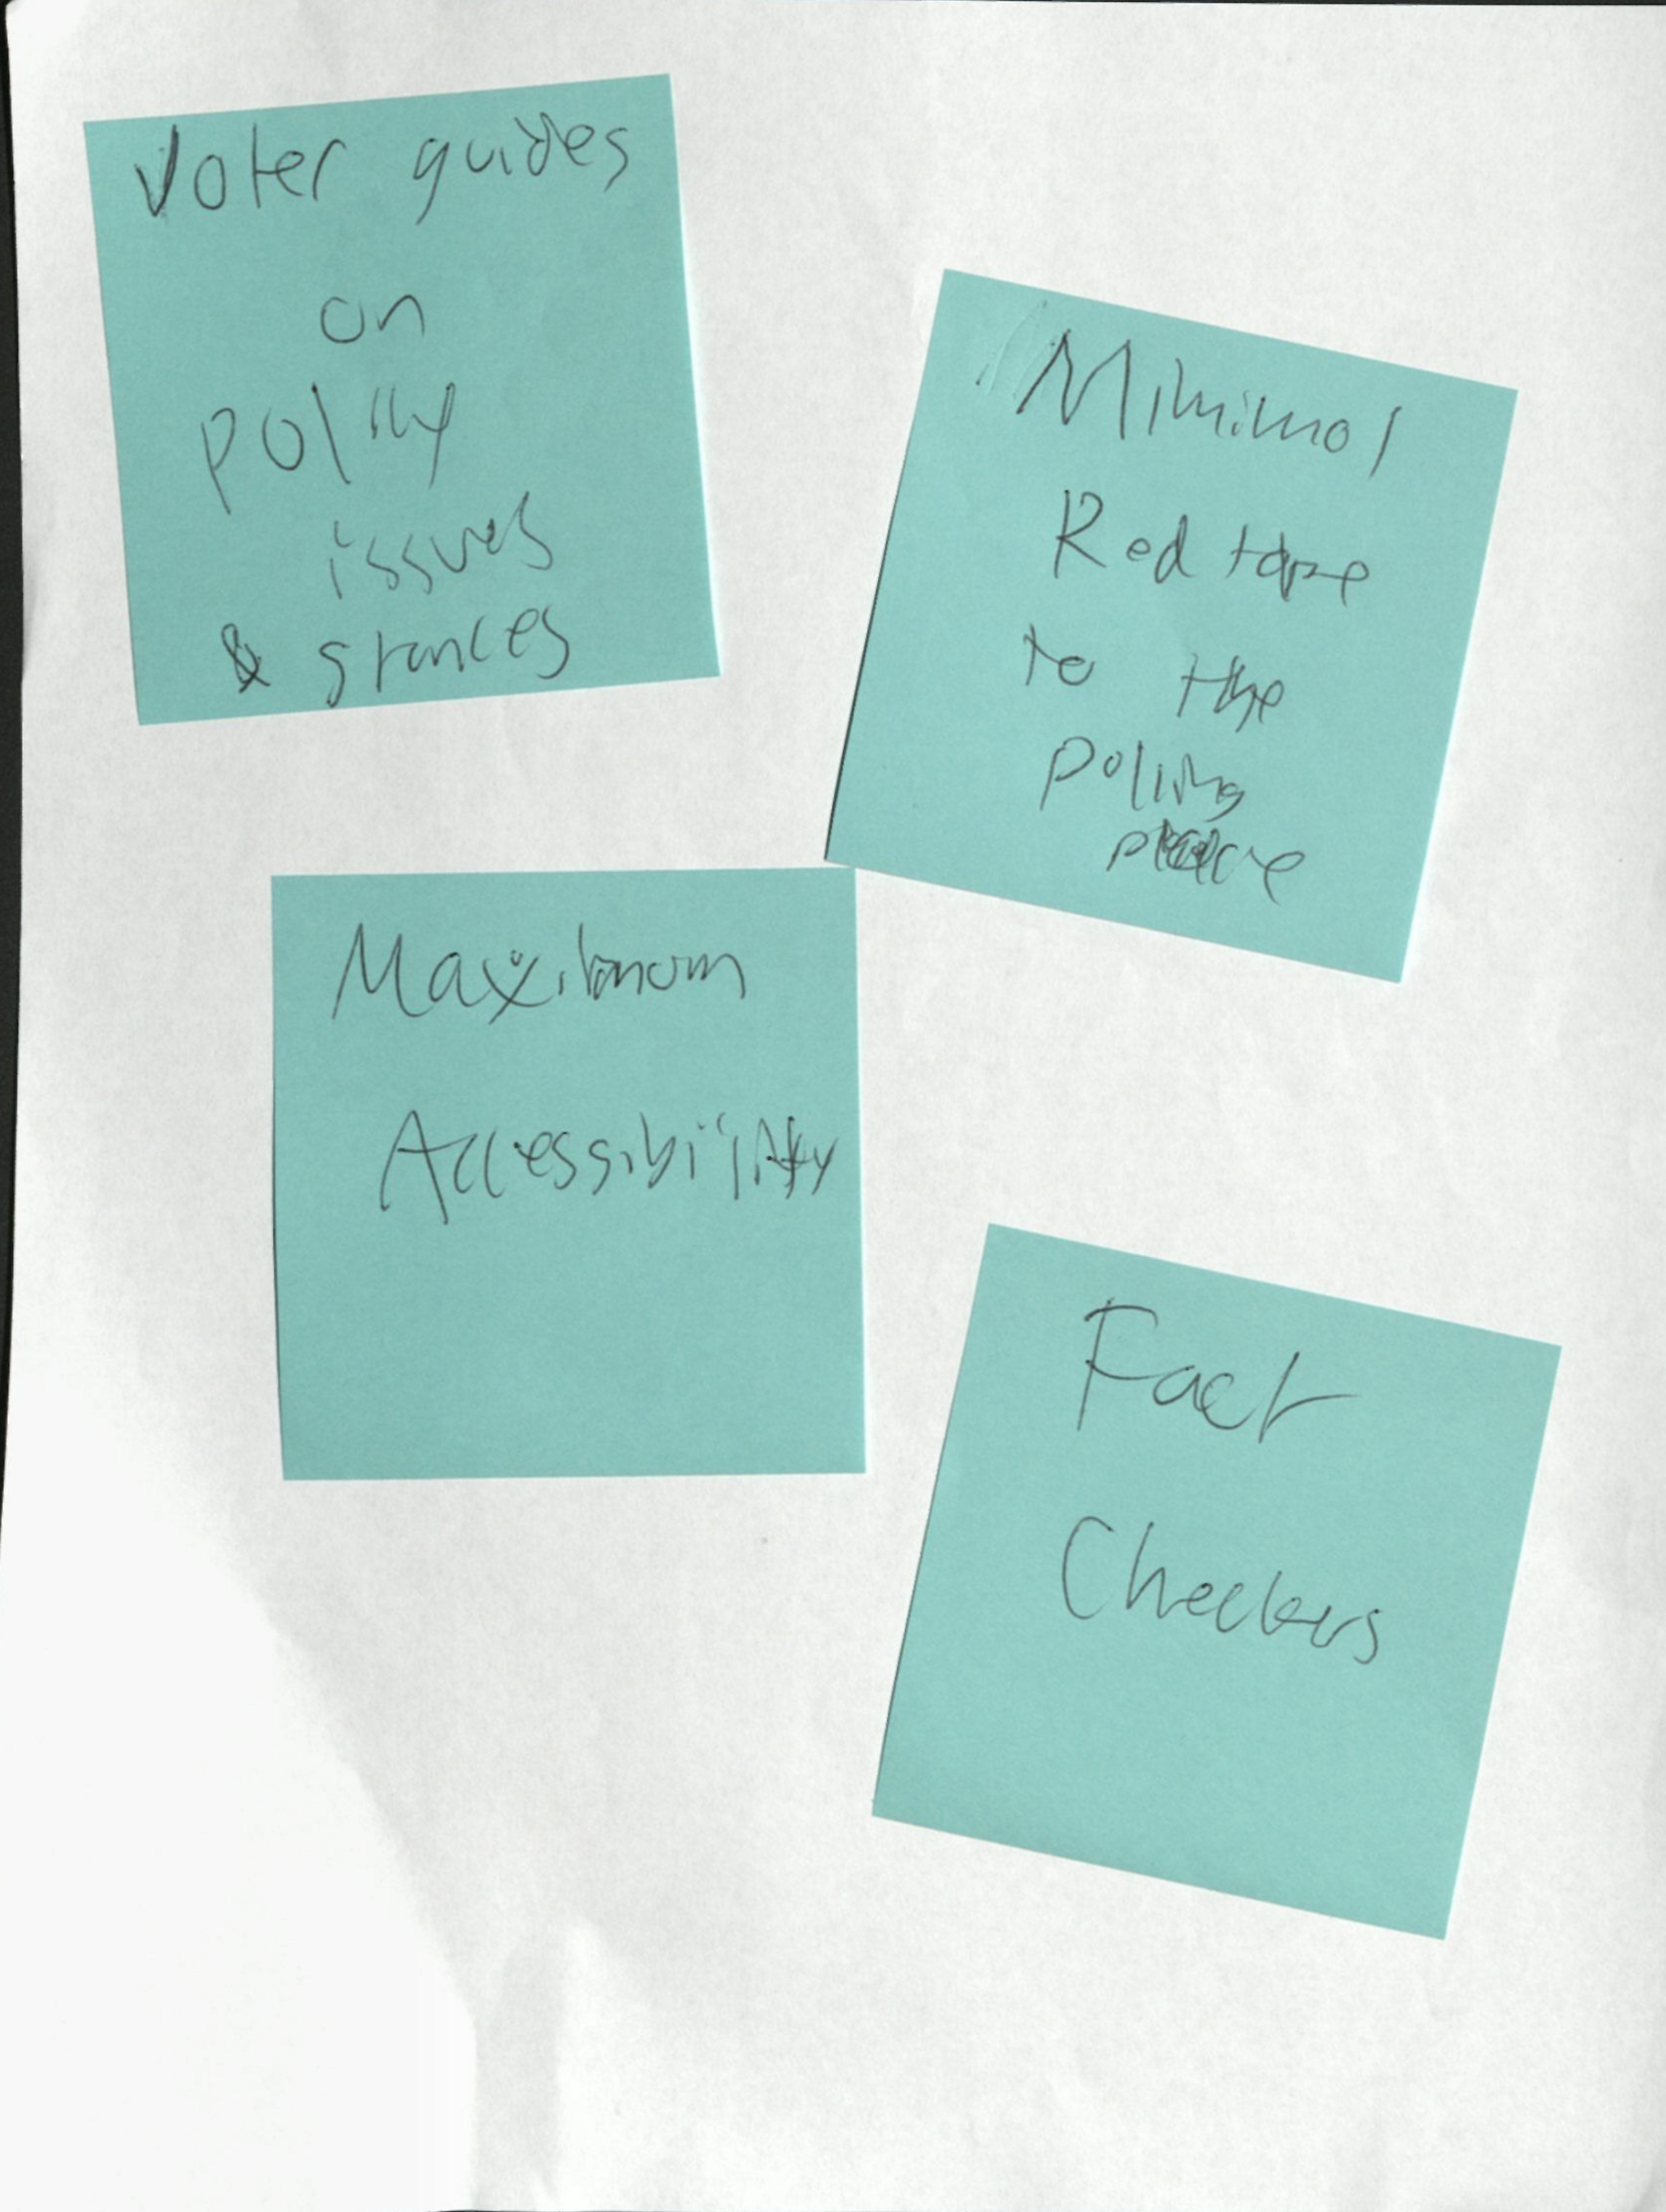 Voter guides
on
policy
issues
& stances
Minimal
Red tape
to the
poling
place
Maximum
Accessibility
Fact
Checkers